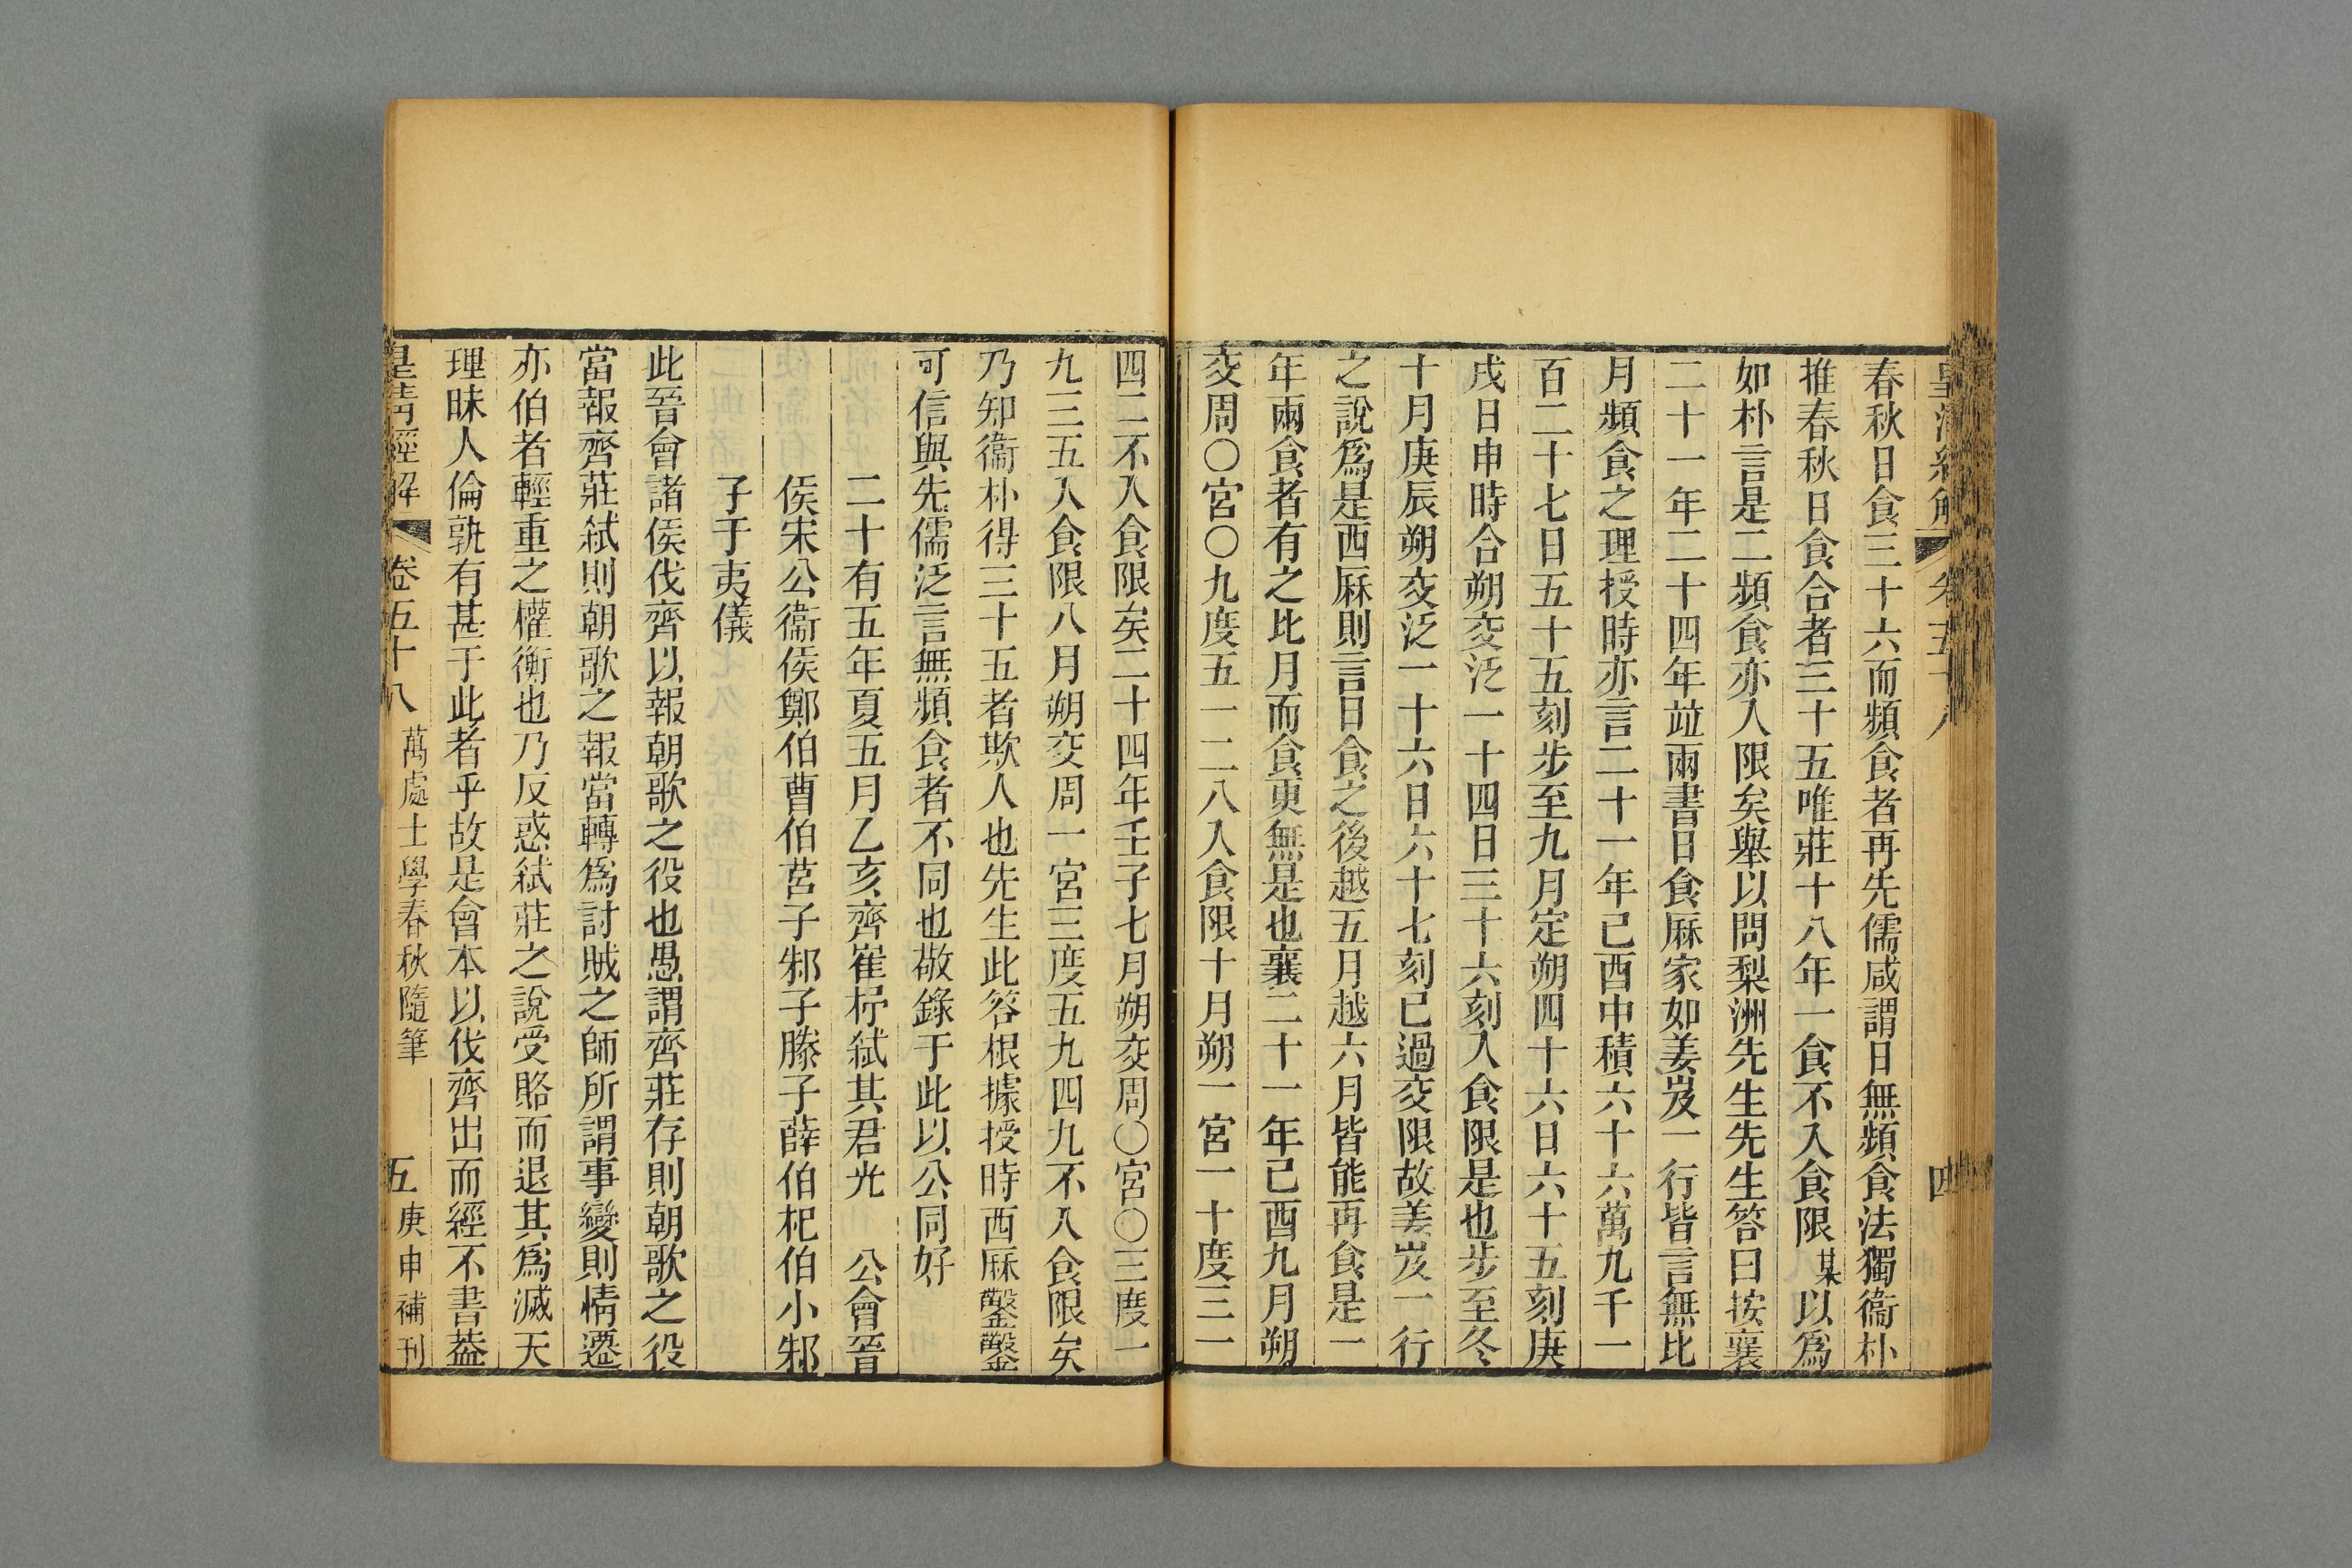 春秋日食三十六而頻食者再先儒咸謂日無頻食法獨衞朴
推春秋日食合者三十五唯莊十八年一食不入食限某以爲
如朴言是二頻食亦入限矣舉以問梨洲先生先生答曰按襄
二十一年二十四年竝兩書日食厤家如姜岌一行皆言無比
月頻食之理授時亦言二十一年己酉中積六十六萬九千一
百二十七日五十五刻步至九月定朔四十六日六十五刻庚
戌日申時合朔交泛一十四日三十六刻入食限是也步至冬
十月庚辰朔交泛一十六日六十七刻已過交限故姜岌一行
之說爲是西厤則言日食之後越五月越六月皆能再食是一
年兩食者有之比月而食更無是也襄二十一年己酉九月朔
交周〇宮〇九度五一二八入食限十月朔一宮一十度三一
四二不入食限矣二十四年壬子七月朔交周〇宮〇三度一
九三五入食限八月朔交周一宮三度五九四九不入食限矣
乃知衞朴得三十五者欺人也先生此答根據授時西厤鑿鑿
可信與先儒泛言無頻食者不同也敬錄于此以公同好
二十有五年夏五月乙亥齊崔杼弑其君光 公會晉
侯宋公衞侯鄭伯曹伯莒子邾子滕子薛伯杞伯小邾
子于夷儀
此晉會諸侯伐齊以報朝歌之役也愚謂齊莊存則朝歌之役
當報齊莊弑則朝歌之報當轉爲討賊之師所謂事變則情遷
亦伯者輕重之權衡也乃反惑弑莊之說受賂而退其爲滅天
理昧人倫孰有甚于此者乎故是會本以伐齊出而經不書蓋
皇清經解 卷五十八 萬處士學春秋隨筆 五 庚申補刊